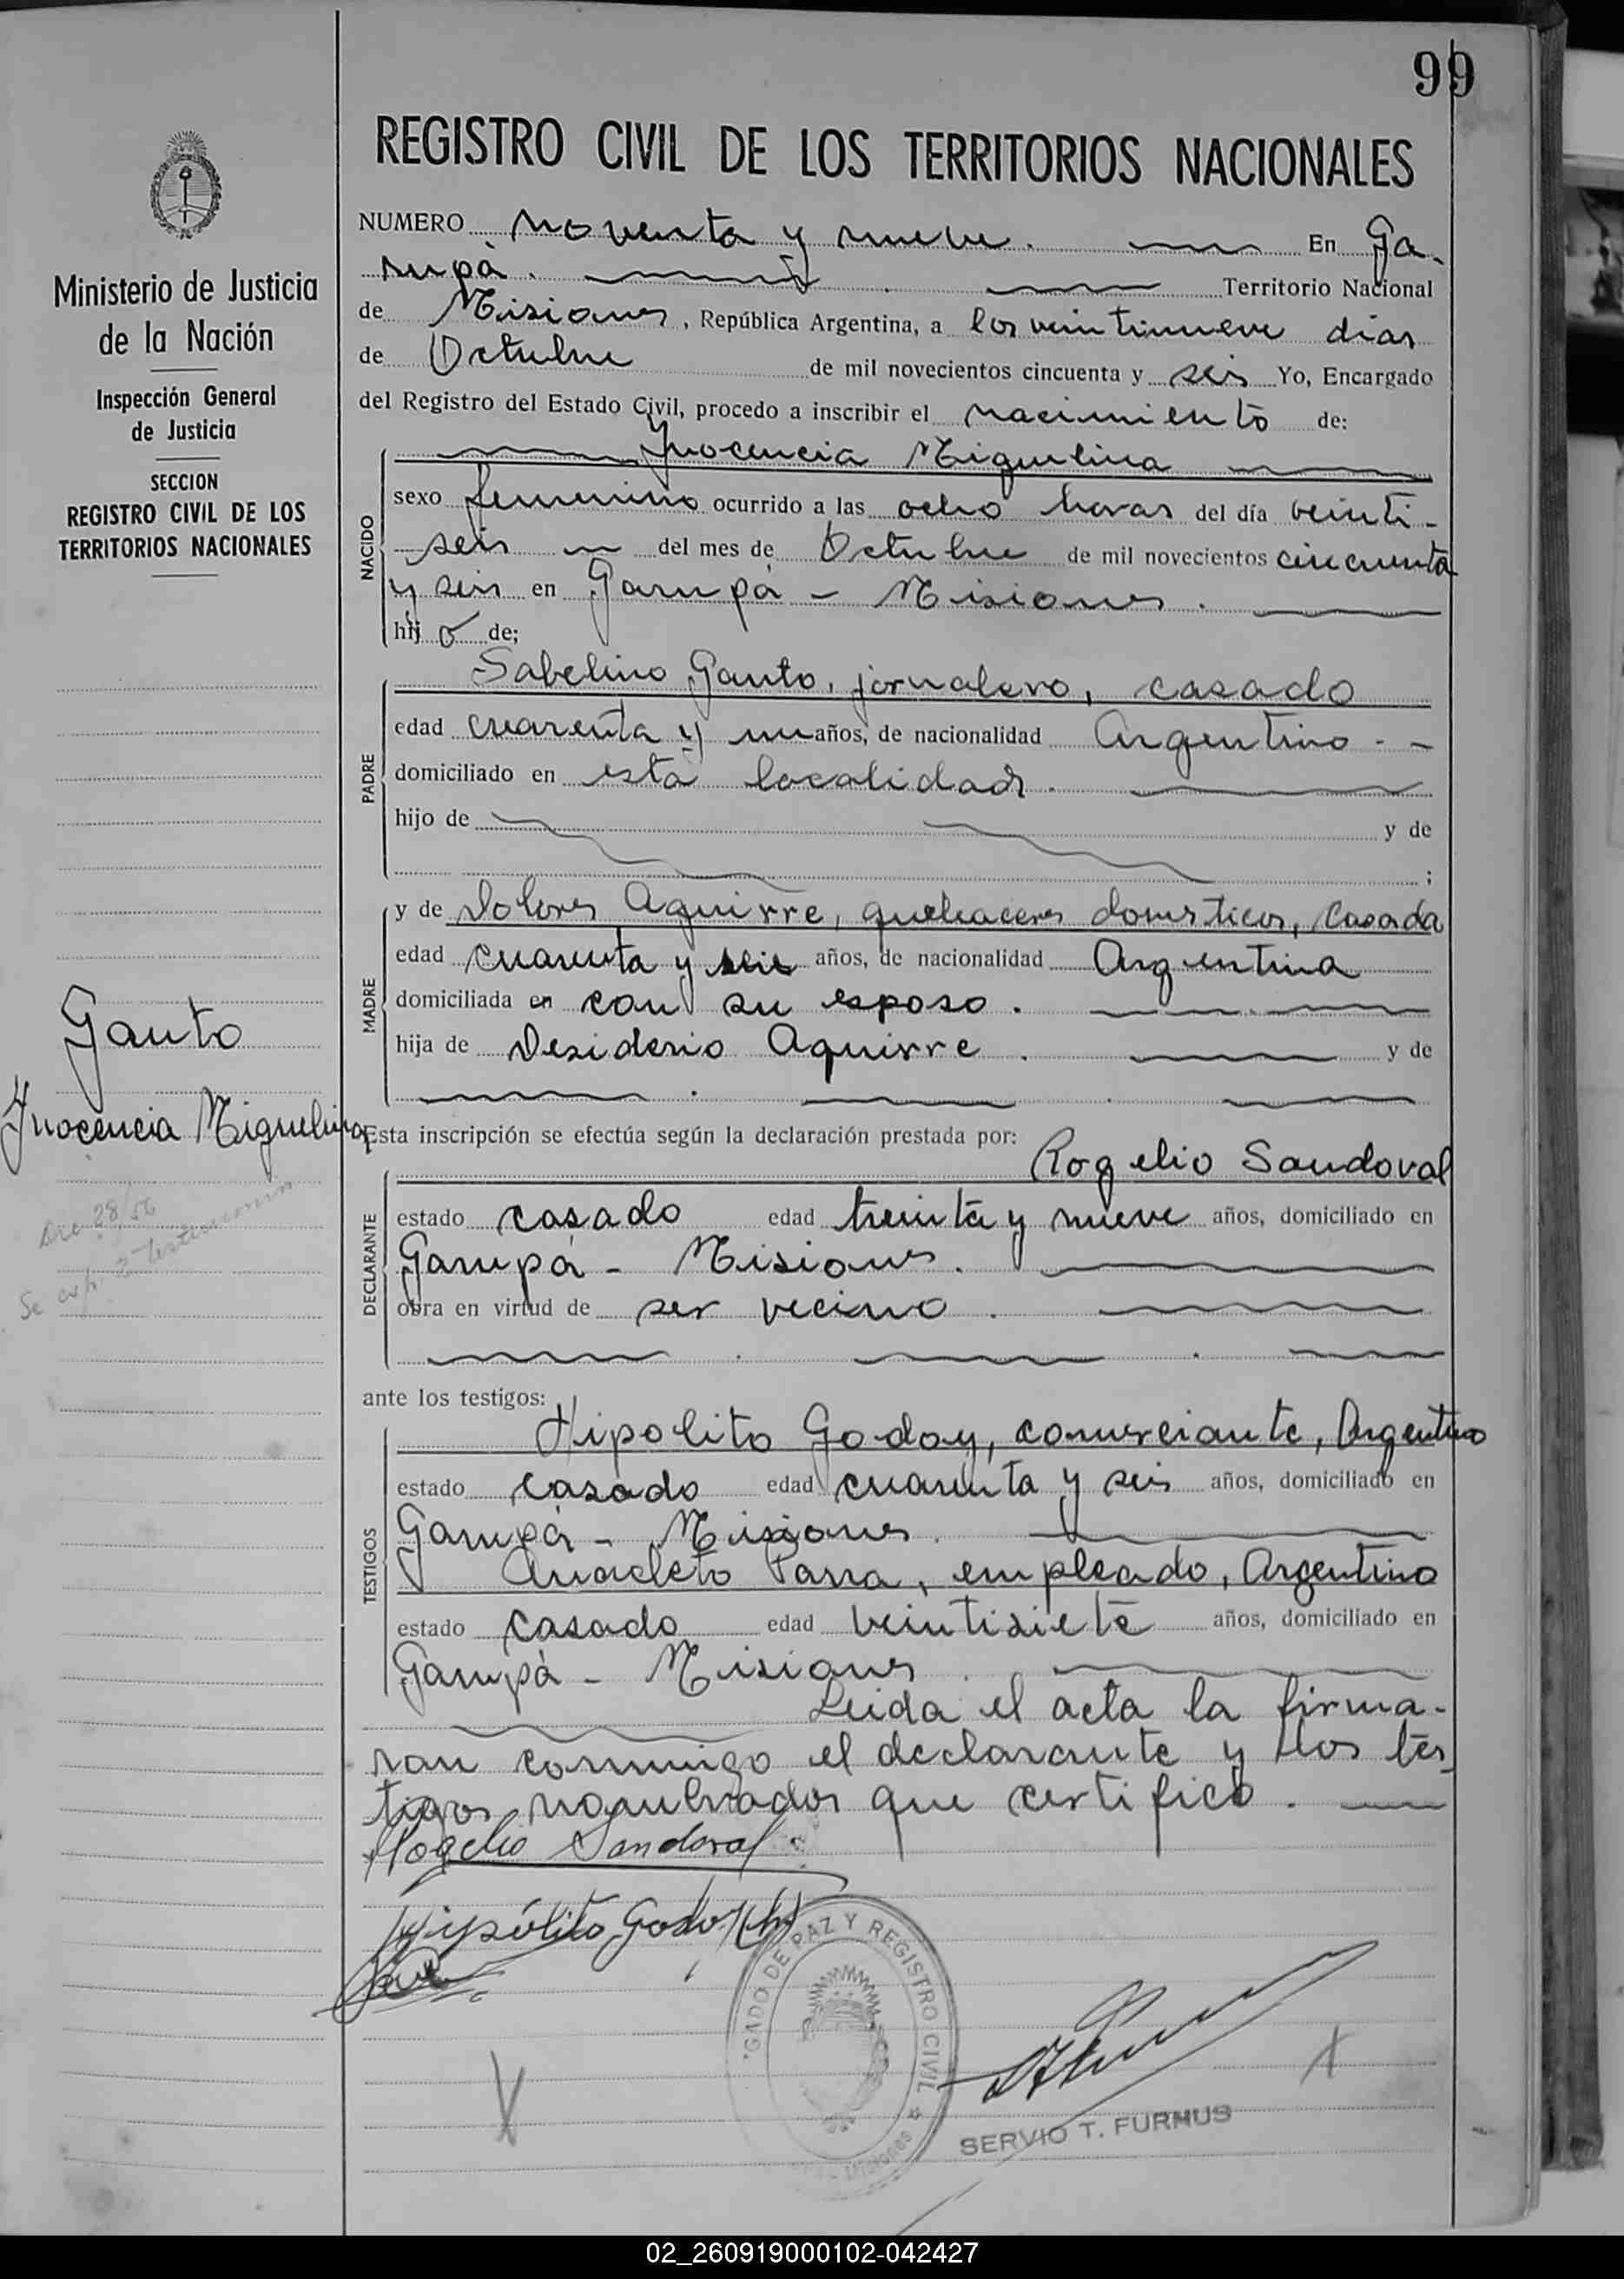 99
REGISTRO CIVIL DE LOS TERRITORIOS NACIONALES
Ministerio de Justicia
de la Nación
Inspección General
de Justicia
SECCION
REGISTRO CIVIL DE LOS
TERRITORIOS NACIONALES
NUMERO noventa y nueve. En Ga-
rupá. Territorio Nacional
de Misiones, República Argentina, a los veintinueve dias
de Octubre de mil novecientos cincuenta y seis Yo, Encargado
del Registro del Estado Civil, procedo a inscribir el nacimiento de:
Inocencia Miguelina
NACIDO
sexo femenino ocurrido a las ocho horas del día veinti-
seis del mes de Octubre de mil novecientos cincuenta
y seis en Garupá - Misiones.
hij o de;
Sabelino Gauto, jornalero, casado
PADRE
edad cuarenta y un años, de nacionalidad Argentino - -
domiciliado en esta localidad.
hijo de y de
;
MADRE
y de Dolores Aguirre, quehaceres domesticos, casada
edad cuarenta y seis años, de nacionalidad Argentina
domiciliada en con su esposo.
hija de Desiderio Aguirre. y de
Gauto
Inocencia Miguelina
Esta inscripción se efectúa según la declaración prestada por:
Rogelio Sandoval
DECLARANTE
estado casado edad treinta y nueve años, domiciliado en
Garupá - Misiones.
obra en virtud de ser vecino.
Dic 28/56
Se exp. 3 testimonios
ante los testigos:
Hipolito Godoy, comerciante, Argentino
TESTIGOS
estado casado edad cuarenta y seis años, domiciliado en
Garupá - Misiones.
Anacleto Parra, empleado, Argentino
estado casado edad veintisiete años, domiciliado en
Garupá - Misiones.
Leida el acta la firma-
ran conmigo el declarante y los tes-
tigos nombrados que certifico.
Rogelio Sandoval
Hipólito Godoy (h)
GADO DE PAZ Y REGISTRO CIVIL
SERVIO T. FURNUS
02_260919000102-042427